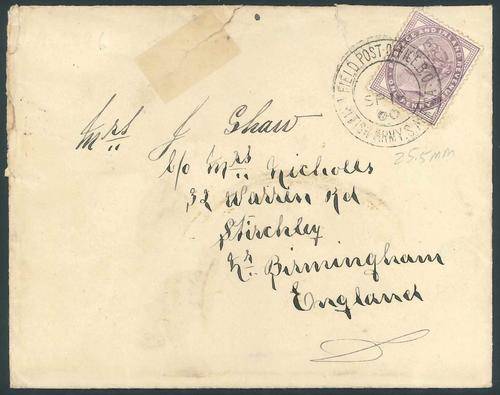 POSTAGE AND INLAND REVENUE
ONE PENNY
FIELD POST OFFICE
BRITISH ARMY S.
SP
00
25.5mm
Mrs J Shaw
c/o Mrs Nicholls
32 Warren Rd
Stirchley
Nr Birmingham
England